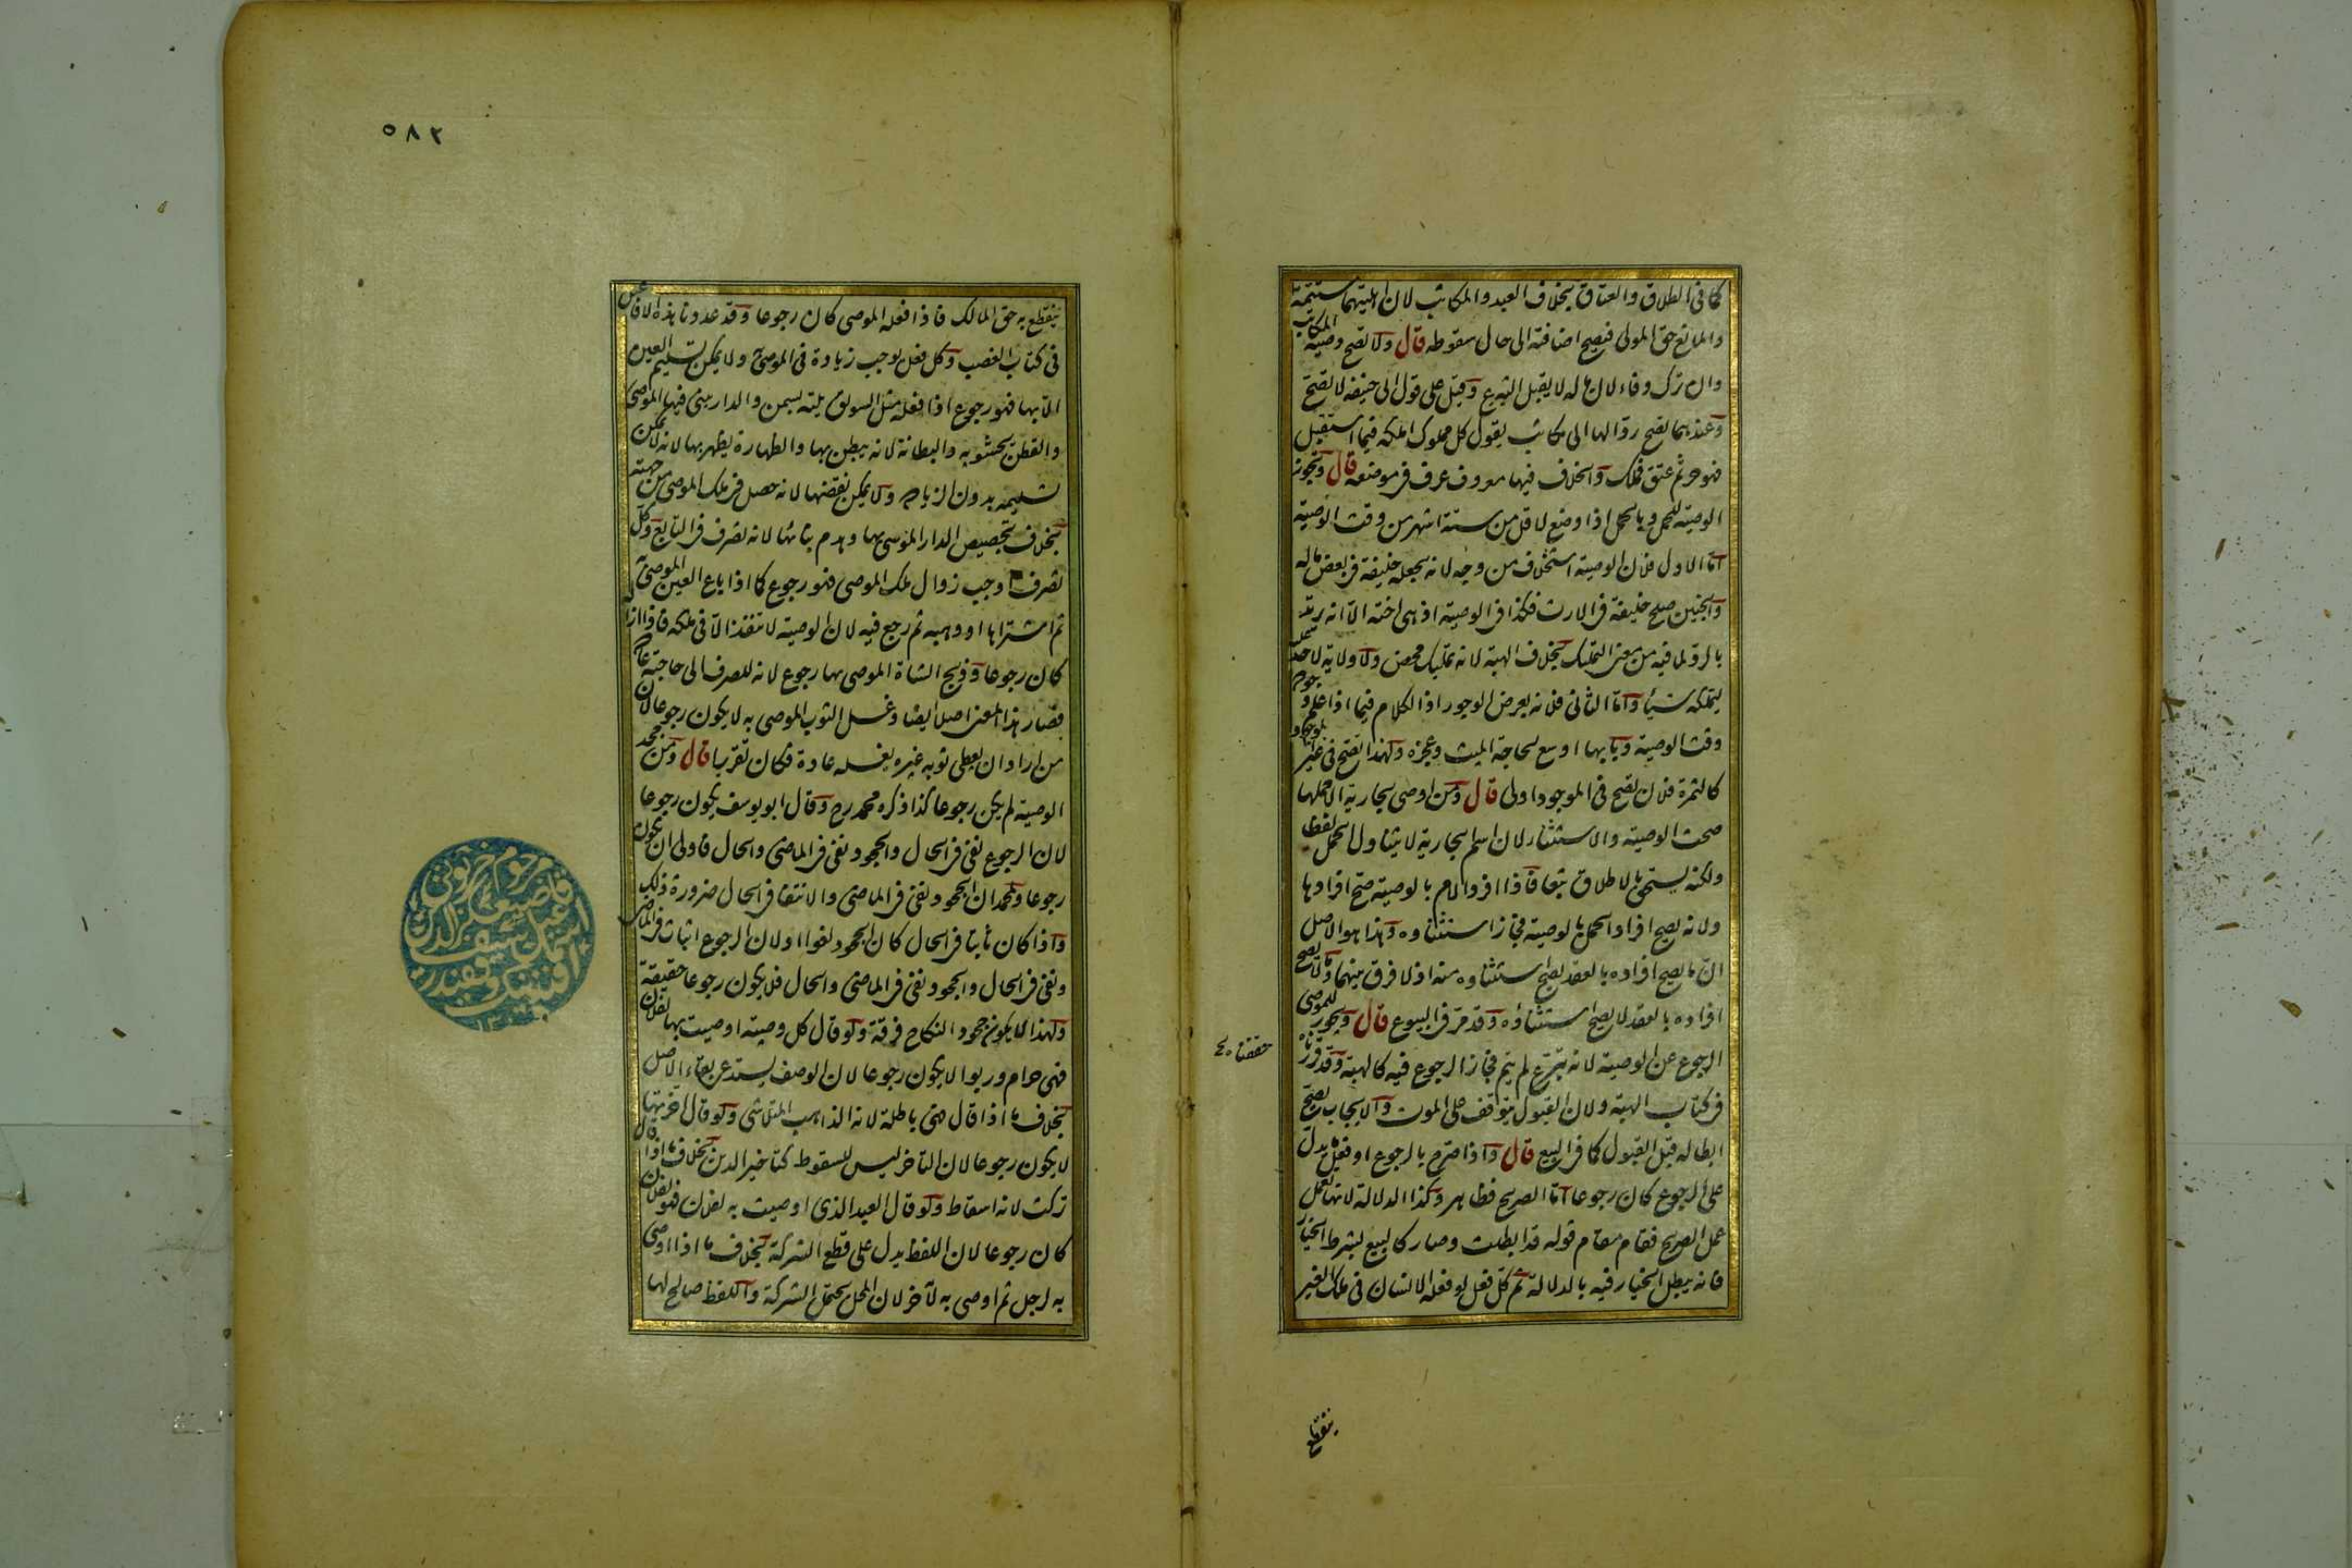 كما في الطلاق والعتاق بخلاف العبد والمكاتب لان اهليتهما مستتمة
والمانع حق المولى فتصح اضافته الى حال سقوطه قال ولا تصح وصية المكاتب
وان ترك وفاء لان ماله لا يقبل التبرع وقيل على قول ابي حنيفة لا تصح
وعندهما تصح ردا لها الى مكاتب يقول كل مملوك املكه فيما استقبل
فهو حر ثم عتق فملك والخلاف فيها معروف عرف في موضعه قال وتجوز
الوصية للحمل وبالحمل اذا وضع لاقل من ستة اشهر من وقت الوصية
اما الاول فلان الوصية استخلاف من وجه لانه يجعله خليفة في بعض ماله
والجنين صلح خليفة في الارث فكذا في الوصية اذ هي اخته الا انه يرتد
بالرد لما فيه من معنى التمليك بخلاف الهبة لانه تمليك محض ولا ولاية لاحد عليه
ليملكه شيئا واما الثاني فلانه بعرض الوجود اذ الكلام فيما اذا علم وجوده
وقت الوصية وبابها اوسع لحاجة الميت وعجزه ولهذا تصح في غير الموجود
كالثمرة فلان تصح في الموجود اولى قال ومن اوصى بجارية الا حملها
صحت الوصية والاستثناء لان اسم الجارية لا يتناول الحمل لفظا
ولكنه يستحق بالاطلاق تبعا فاذا افرد الام بالوصية صح افرادها
ولانه يصح افراد الحمل بالوصية فجاز استثناوه وهذا هو الاصل
ان ما يصح افراده بالعقد يصح استثناوه منه اذ لا فرق بينهما وما لا يصح
افراده بالعقد لا يصح استثناؤه وقد مر في البيوع قال ويجوز للموصي
الرجوع عن الوصية لانه تبرع لم يتم فجاز الرجوع فيه كالهبة وقد قررناه
حققناه
في كتاب الهبة ولان القبول يتوقف على الموت والايجاب يصح
ابطاله قبل القبول كما في البيع قال واذا صرح بالرجوع او فعل ما يدل
على الرجوع كان رجوعا اما الصريح فظاهر وكذا الدلالة لانها تعمل
عمل الصريح فقام مقام قوله قد ابطلت وصار كالبيع بشرط الخيار
فانه يبطل الخيار فيه بالدلالة ثم كل فعل لو فعله الانسان في ملك الغير
ينقطع
٥٨٢
ينقطع به حق المالك فاذا فعله الموصي كان رجوعا وقد عددنا هذه الافاعيل
في كتاب الغصب وكل فعل يوجب زيادة في الموصى ولا يمكن تسليم العين
الا بها فهو رجوع اذا فعله مثل السويق يلته بسمن والدار يبني فيها الموصي
والقطن يحشو به والبطانة لانه يبطن بها والظهارة يظهر بها لانه لا يمكن
تسليمه بدون الزيادة ولا يمكن نقضها لانه حصل في ملك الموصي من جهته
بخلاف تجصيص الدار الموصى بها وهدم بنائها لانه تصرف في التابع وكل
تصرف اوجب زوال ملك الموصي فهو رجوع كما اذا باع العين الموصى به
ثم اشتراها او وهبه ثم رجع فيه لان الوصية لا تنفذ الا في ملكه فاذا ازاله
كان رجوعا وذبح الشاة الموصى بها رجوع لانه للصرف الى حاجته عادة
فصار هذا المعنى اصلا ايضا وغسل الثوب الموصى به لا يكون رجوعا لان
من اراد ان يعطي ثوبه غيره يغسله عادة فكان تقريرا قال ومن جحد
الوصية لم يكن رجوعا كذا ذكره محمد رح وقال ابو يوسف يكون رجوعا
لان الرجوع نفي في الحال والجحود نفي في الماضي والحال فاولى ان يكون
رجوعا ولمحمد ان الجحود نفي في الماضي والانتفا في الحال ضرورة ذلك
واذا كان ثابتا في الحال كان الجحود لغوا او لان الرجوع اثبات في الماضي
ونفي في الحال والجحود نفي في الماضي والحال فلا يكون رجوعا حقيقة
ولهذا لا يكون جحود النكاح فرقة ولو قال كل وصية اوصيت بها لفلان
فهي حرام وربوا لا يكون رجوعا لان الوصف يستدعي بقاء الاصل
بخلاف ما اذا قال هي باطلة لانه الذاهب المتلاشي ولو قال اخرتها
لا يكون رجوعا لان التاخر ليس للسقوط كتاخير الدين بخلاف ما اذا قال
تركت لانه اسقاط ولو قال العبد الذي اوصيت به لفلان فهو لفلان
كان رجوعا لان اللفظ يدل على قطع الشركة بخلاف ما اذا اوصى
به لرجل ثم اوصى به لآخر لان المحل يحتمل الشركة واللفظ صالح لها